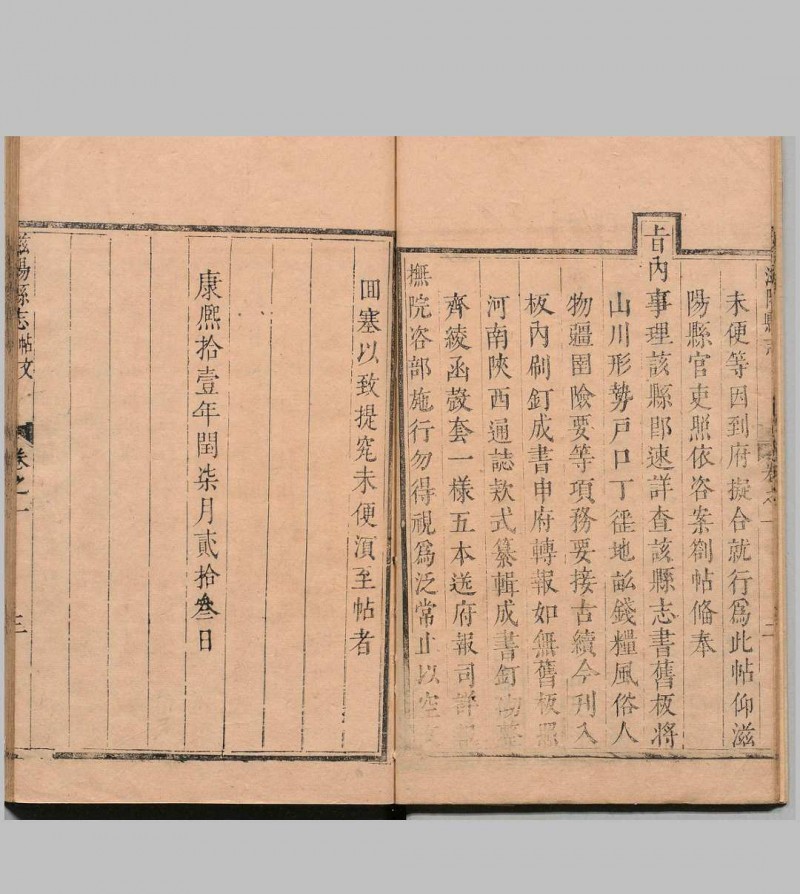 滋陽縣志
卷之一
二
未便等因到府擬合就行爲此帖仰滋
陽縣官吏照依咨案劄帖俻奉
旨內事理該縣即速詳查該縣志書舊板將
山川形勢戶口丁徭地畝錢糧風俗人
物疆圉險要等項務要接古續今刊入
板內刷釘成書申府轉報如無舊板照
河南陝西通誌欵式纂輯成書釘
齊綾函殼套一樣五本送府報司詳
撫院咨部施行勿得視爲泛常止以空
回塞以致提究未便湏至帖者
康熈拾壹年閏柒月貳拾叁日
滋陽縣志 帖文
卷之一
三